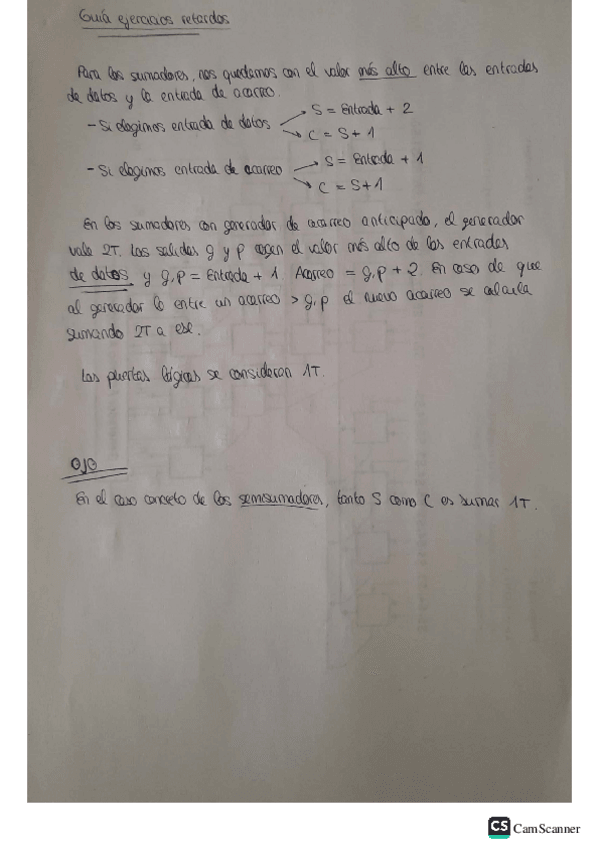 Guía ejercicios retardos
Para los sumadores, nos quedamos con el valor más alto entre las entradas
de datos y la entrada de acarreo.
- Si elegimos entrada de datos → S = Entrada + 2
→ C = S + 1
- Si elegimos entrada de acarreo → S = Entrada + 1
→ C = S + 1
En los sumadores con generador de acarreo anticipado, el generador
vale 2T. Las salidas g y p cogen el valor más alto de las entradas
de datos y g,p = Entrada + 1. Acarreo = g,p + 2. En caso de que
al generador le entre un acarreo > g,p el nuevo acarreo se calcula
sumando 2T a ese.
Las puertas lógicas se consideran 1T.
OJO
En el caso concreto de los semisumadores, tanto S como C es sumar 1T.
CS CamScanner